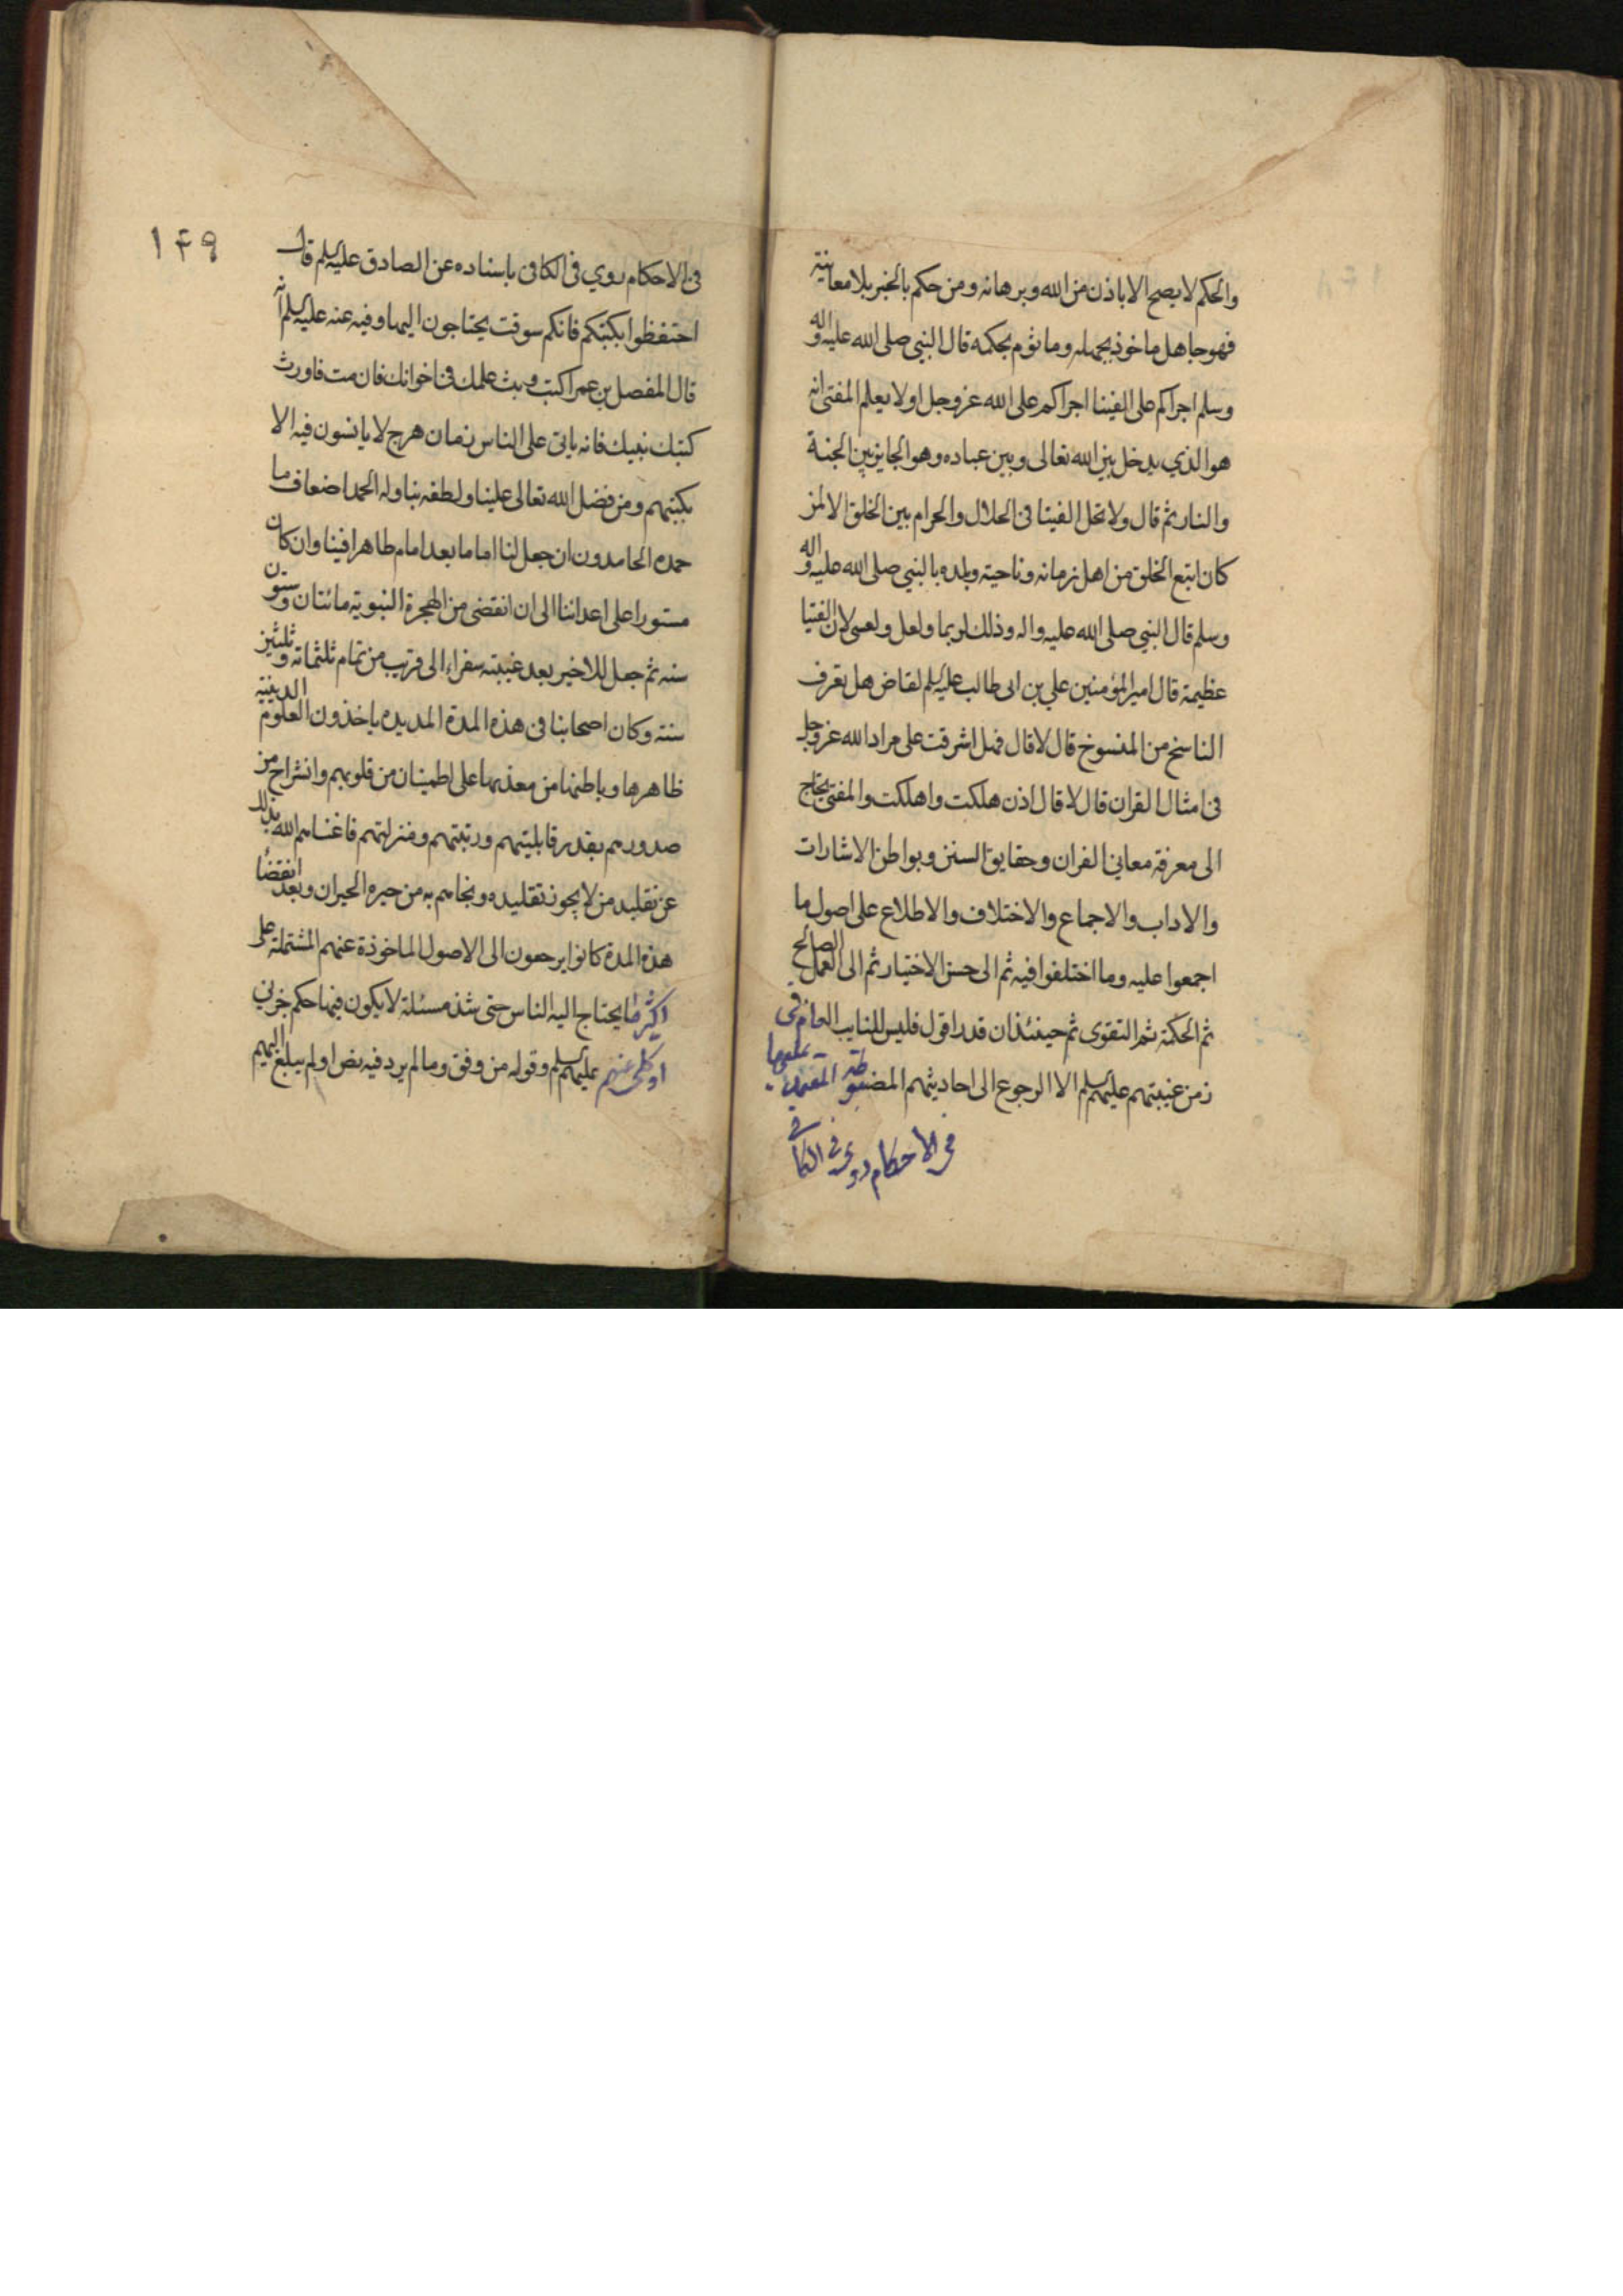 والحكم لا يصح الا باذن من الله وبرهانه ومن حكم بالخبر بلا معاينة
فهو جاهل ماخوذ بجهله وماثوم بحكمه قال النبي صلى الله عليه واله
وسلم اجراكم على الفيتا اجراكم على الله عزوجل اولا يعلم المفتى انه
هو الذي يدخل بين الله تعالى وبين عباده وهو الجايز بين الجنة
والنار ثم قال ولا تحل الفيتا فى الحلال والحرام بين الخلق الا لمن
كان اتبع الخلق من اهل زمانه وناحيته وبلده بالنبي صلى الله عليه واله
وسلم قال النبي صلى الله عليه واله وذلك لربما ولعل ولعسى لان الفتيا
عظيمة قال امير المؤمنين علي بن ابى طالب عليه السلم لقاض هل تعرف
الناسخ من المنسوخ قال لا قال فهل اشرفت على مراد الله عزوجل
فى امثال القران قال لا قال اذن هلكت واهلكت والمفتى يحتاج
الى معرفة معاني القران وحقايق السنن وبواطن الاشارات
والاداب والاجماع والاختلاف والاطلاع على اصول ما
اجمعوا عليه وما اختلفوا فيه ثم الى حسن الاختيار ثم الى العمل الصالح
ثم الحكمة ثم التقوى ثم حينئذ ان قدر اقول فليس للنايب العام فى
زمن غيبتهم عليهم السلم الا الرجوع الى احاديثهم المضبوطة
فى الاحكام روى فى الكافى
١۴٩
فى الاحكام روي فى الكافى باسناده عن الصادق عليه السلم قال
احتفظوا بكتبكم فانكم سوفت يحتاجون اليها وفيه عنه عليه السلم انه
قال المفضل بن عمر اكتب وبث علمك فى اخوانك فان مت فاورث
كتبك بنيك فانه ياتى على الناس زمان هرج لا يانسون فيه الا
بكتبهم ومن فضل الله تعالى علينا ولطفه بنا وله الحمد اضعاف ما
حمده الحامدون ان جعل لنا اماما بعد امام طاهرا فينا وان كان
مستورا على اعدائنا الى ان انقضى من الهجرة النبوية مائتان وستون
سنه ثم جعل للاخير بعد غيبته سفراء الى قريب من تمام ثلثمائة وثلثين
سنته وكان اصحابنا فى هذه المدة المديده ياخذون العلوم الدينية
ظاهرها وباطنها من معدنها على اطمينان من قلوبهم وانشراح من
صدورهم بقدر قابليتهم ورتبتهم ومنزلتهم فاغناهم الله بذلك
عن تقليد من لا يجوز تقليده ونجاهم به من حيره الحيران وبعد انقضا
هذه المدة كانوا يرجعون الى الاصول الماخوذة عنهم المشتملة على
اكثر ما يحتاج اليه الناس حتى شذ مسئلة لا يكون فيها حكم جزئي
او كلى عنهم عليهم السلم وقوله من وفق وما لم يرد فيه نص او لم يبلغ اليهم